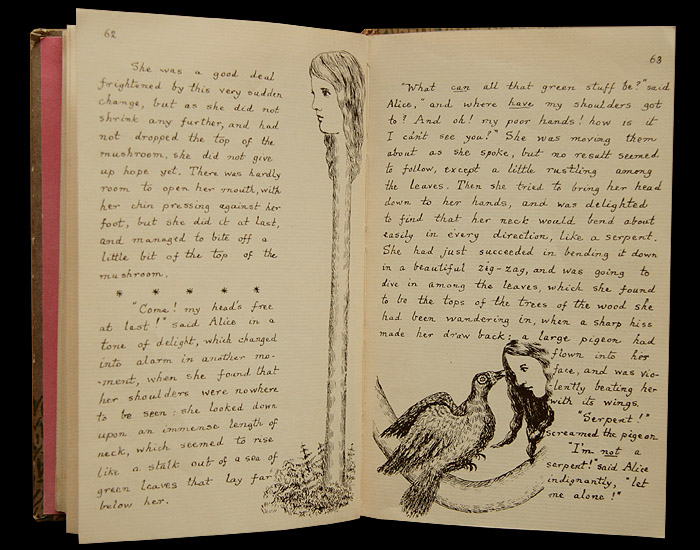 62
She was a good deal
frightened by this very sudden
change, but as she did not
shrink any further, and had
not dropped the top of the
mushroom, she did not give
up hope yet. There was hardly
room to open her mouth, with
her chin pressing against her
foot, but she did it at last,
and managed to bite off a
little bit of the top of the
mushroom.
* * * * *
"Come! my head's free
at last!" said Alice in a
tone of delight, which changed
into alarm in another mo-
-ment, when she found that
her shoulders were nowhere
to be seen: she looked down
upon an immense length of
neck, which seemed to rise
like a stalk out of a sea of
green leaves that lay far
below her.
63
"What can all that green stuff be?" said
Alice, "and where have my shoulders got
to? And oh! my poor hands! how is it
I can't see you?" She was moving them
about as she spoke, but no result seemed
to follow, except a little rustling among
the leaves. Then she tried to bring her head
down to her hands, and was delighted
to find that her neck would bend about
easily in every direction, like a serpent.
She had just succeeded in bending it down
in a beautiful zig-zag, and was going to
dive in among the leaves, which she found
to be the tops of the trees of the wood she
had been wandering in, when a sharp hiss
made her draw back: a large pigeon had
flown into her
face, and was vio-
-lently beating her
with its wings.
"Serpent!"
screamed the pigeon
"I'm not a
serpent!" said Alice
indignantly, "let
me alone!"